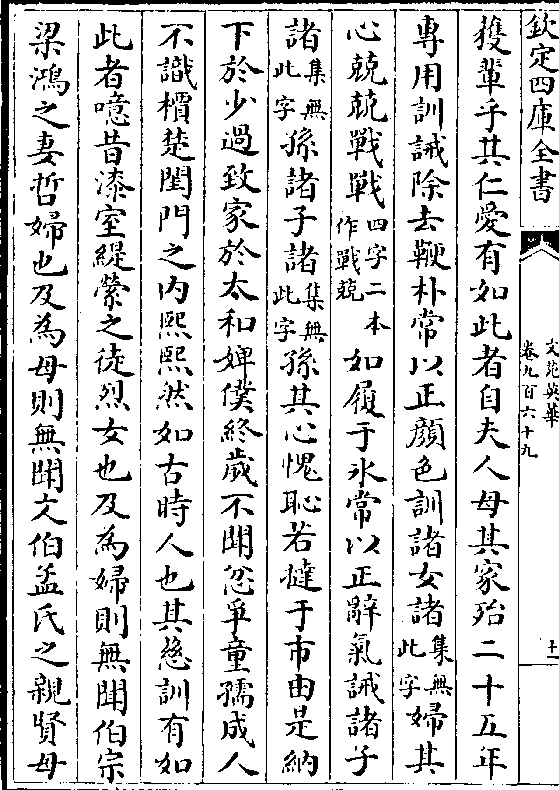 欽定四庫全書
文苑英華
卷九百六十九
十一
獲輩乎其仁愛有如此者自夫人母其家殆二十五年
專用訓誡除去鞭朴常以正顏色訓諸女諸集無此字婦其
心兢兢戰戰四字二本作戰兢如履于氷常以正辭氣誡諸子
諸集無此字孫諸子諸集無此字孫其心愧恥若撻于市由是納
下於少過致家於太和婢僕終歲不聞忿爭童孺成人
不識檟楚閨門之内熙熙然如古時人也其慈訓有如
此者噫昔漆室緹縈之徒烈女也及為婦則無聞伯宗
梁鴻之妻哲婦也及為母則無聞文伯孟氏之親賢母